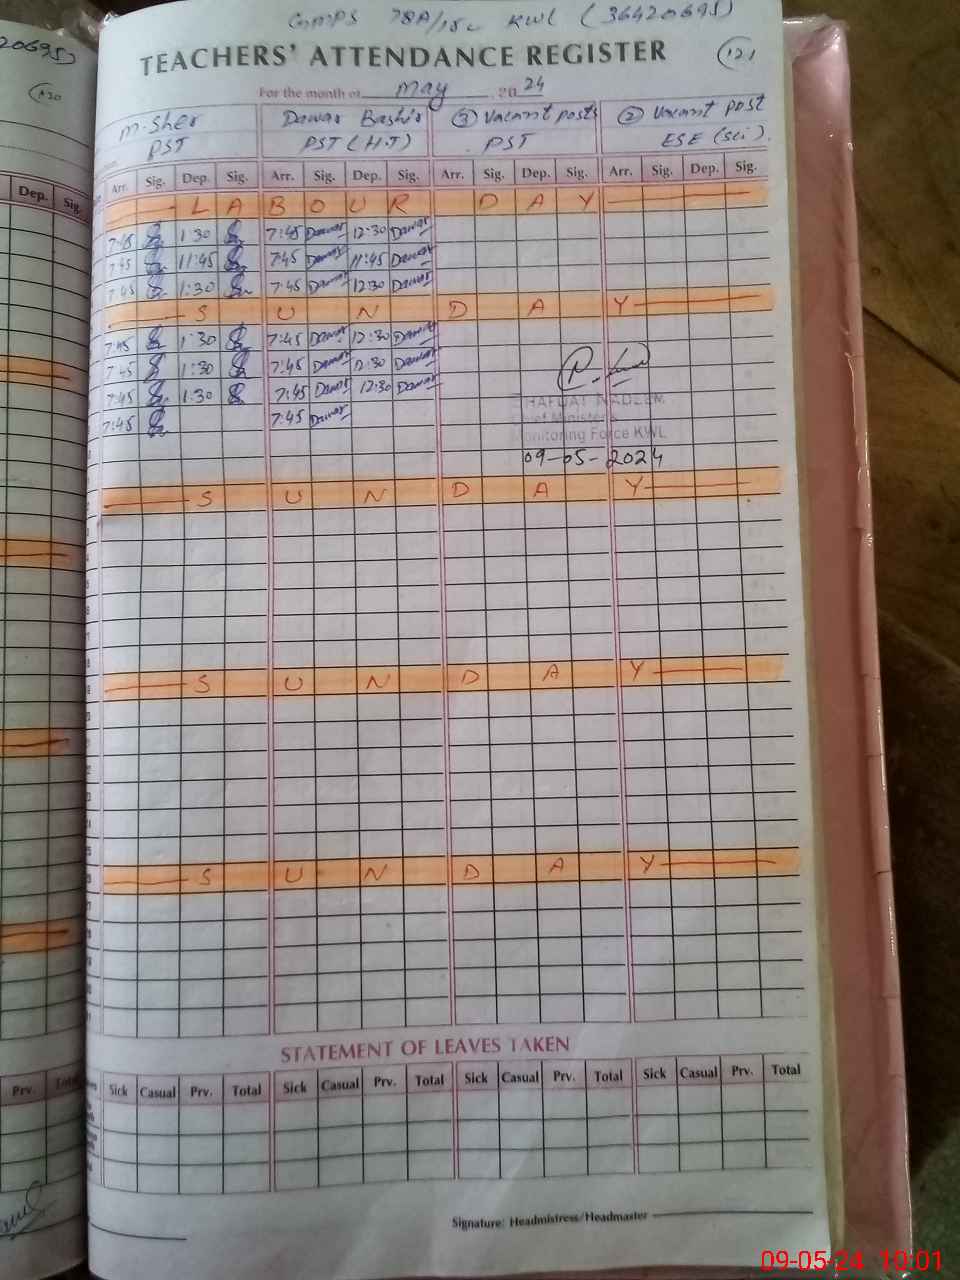 GMPS 78A/15L KWL (36420695)
20695)
TEACHERS' ATTENDANCE REGISTER
121
120
For the month of May 2024
M. Sher Dawar Bashir ③ Vacant posts ② Vacant post
PST PST (H.T) PST ESE (Sci).
Dep. Sig.
Arr. Sig. Dep. Sig. Arr. Sig. Dep. Sig. Arr. Sig. Dep. Sig. Arr. Sig. Dep. Sig.
L A B O U R D A Y
7:45 1:30 7:45 Dawar 12:30 Dawar
7:45 11:45 7:45 Dawar 11:45 Dawar
7:45 1:30 7:45 Dawar 12:30 Dawar
S U N D A Y
7:45 1:30 7:45 Dawar 12:30 Dawar
7:45 1:30 7:45 Dawar 12:30 Dawar
7:45 1:30 7:45 Dawar 12:30 Dawar
7:45 7:45 Dawar
NADEEM
Chief Minister's
Monitoring Force KWL
09-05-2024
S U N D A Y
S U N D A Y
S U N D A Y
STATEMENT OF LEAVES TAKEN
Prv. Total
Sick Casual Prv. Total Sick Casual Prv. Total Sick Casual Prv. Total Sick Casual Prv. Total
Signature: Headmistress/Headmaster
09-05-24 10:01